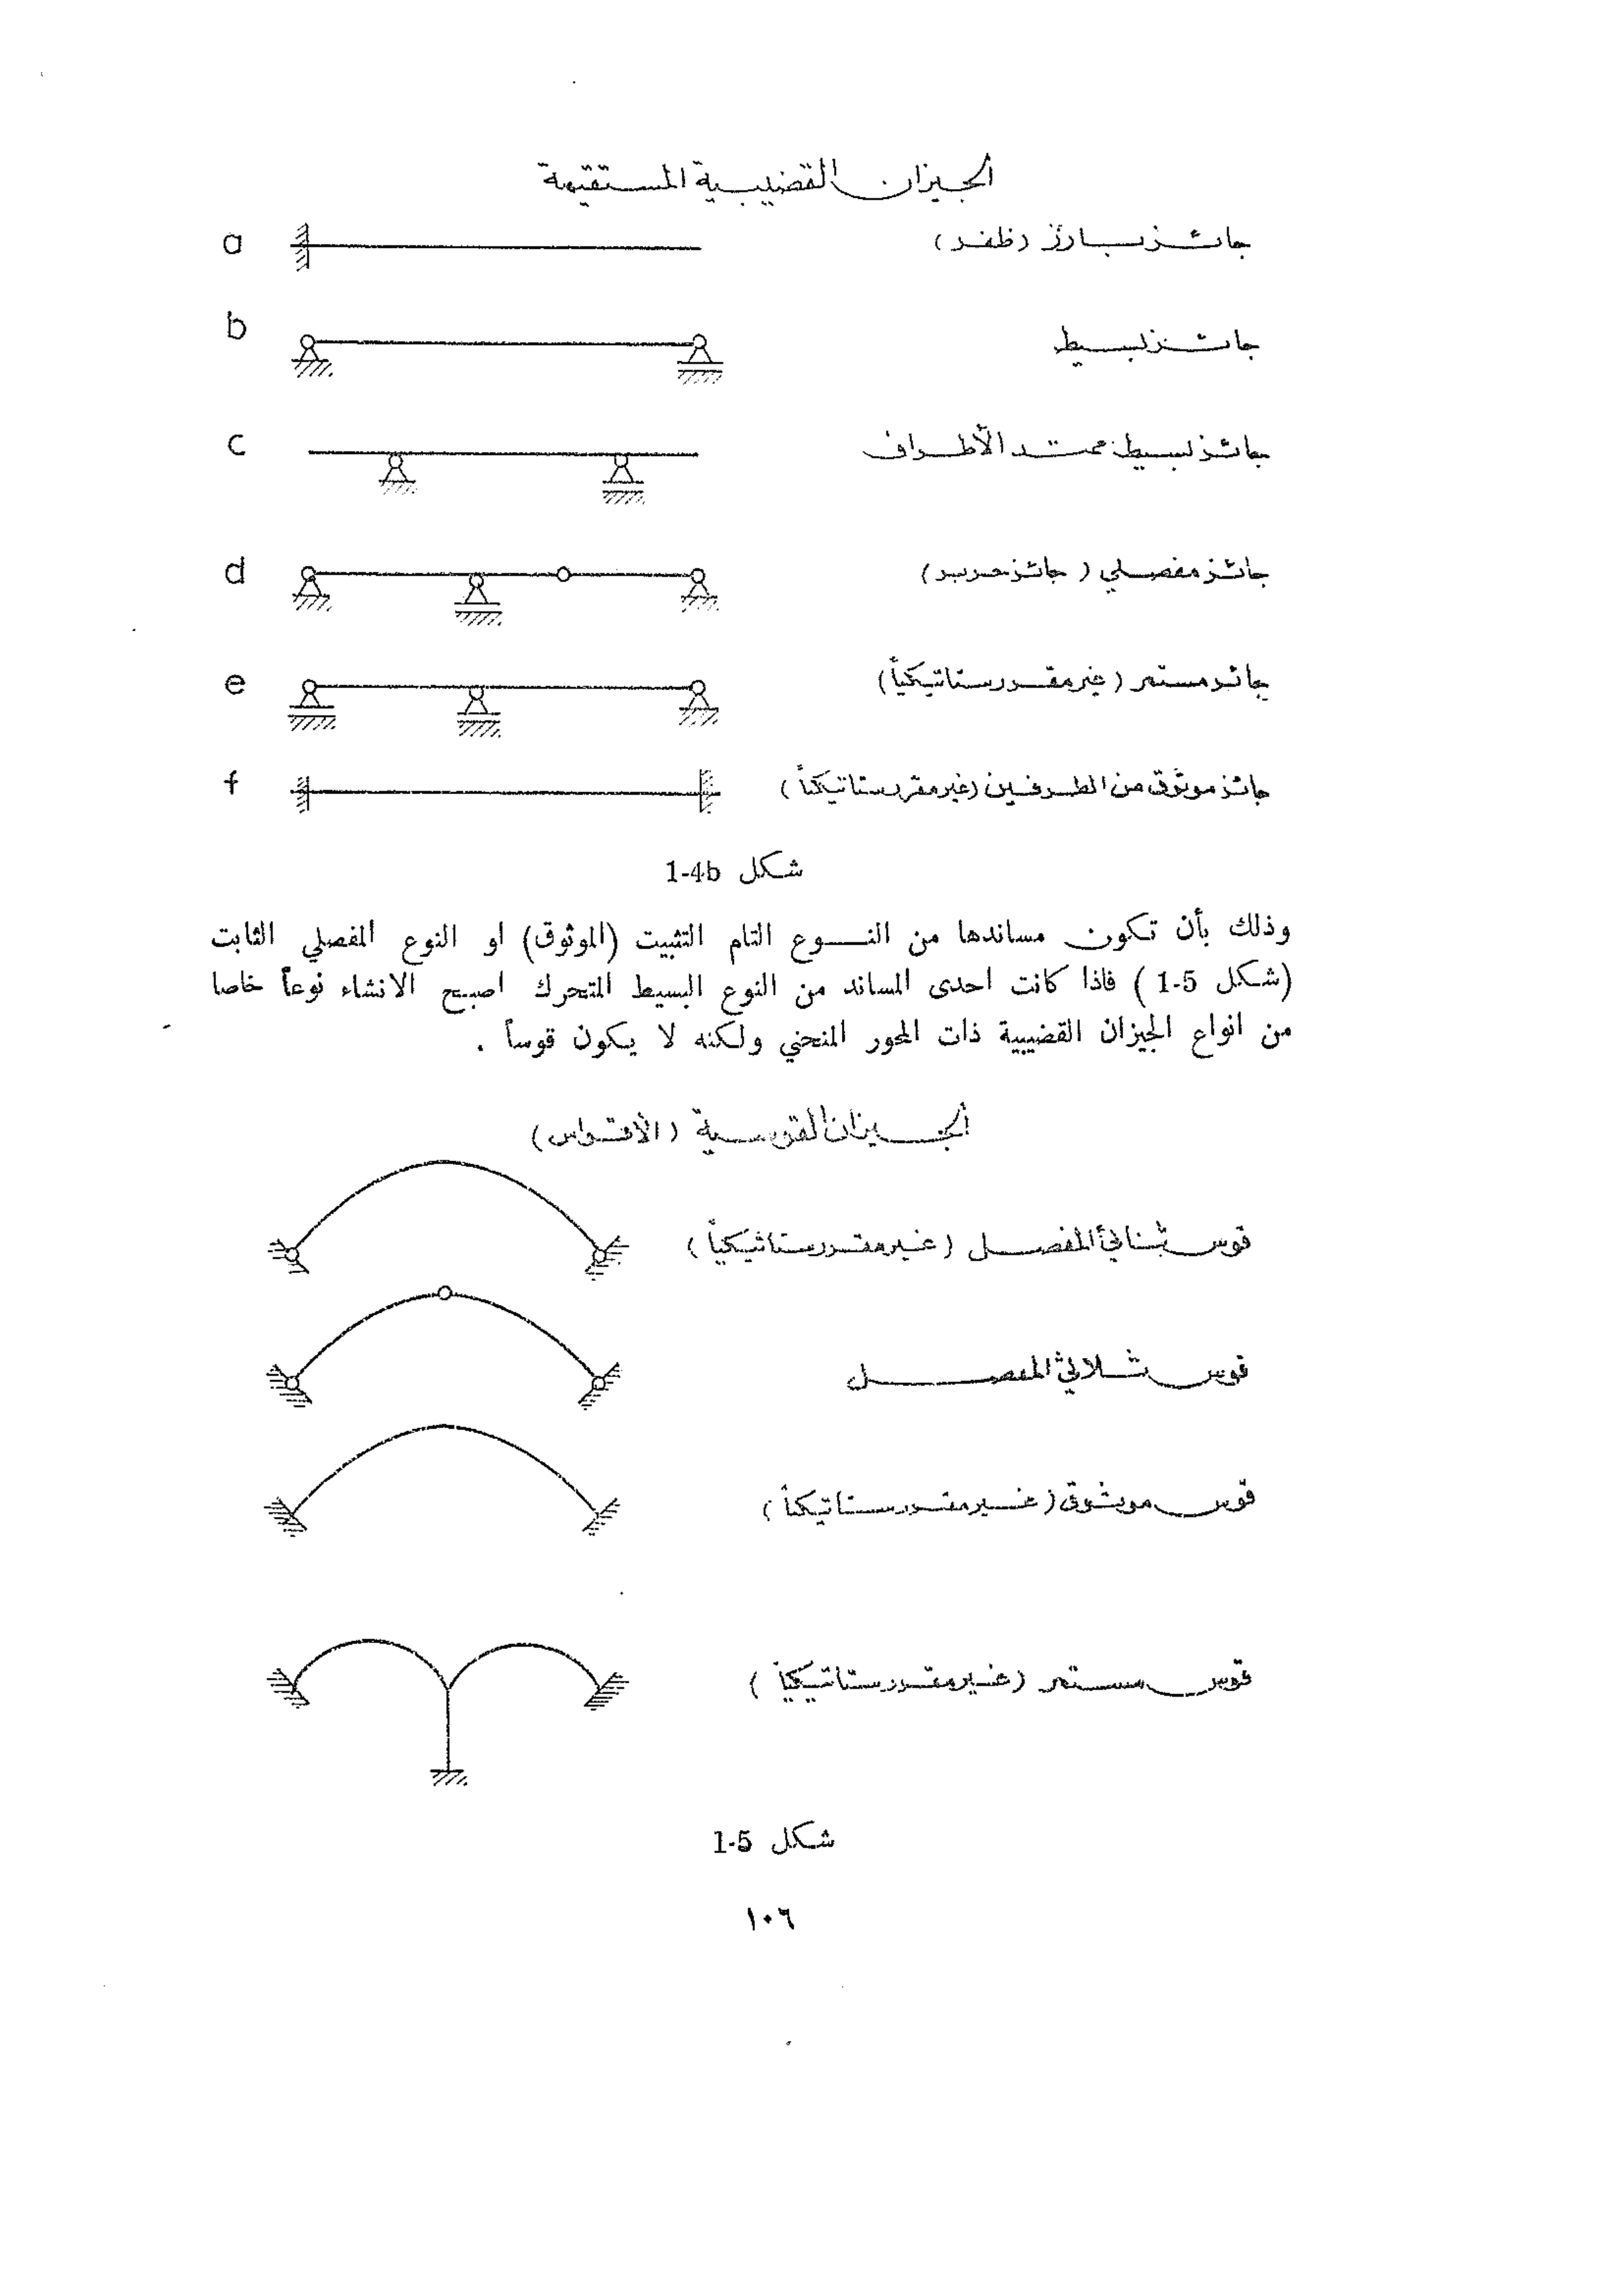 الجيزان القضيبية المستقيمة
a جائز بارز (ظفر)
b جائز بسيط
c جائز بسيط ممتد الأطراف
d جائز مفصلي (جائز جربر)
e جائز مستمر (غير مقرر ستاتيكياً)
f جائز موثوق من الطرفين (غير مقرر ستاتيكياً)
شكل 1-4b
وذلك بأن تكون مساندها من النوع التام التثبيت (الموثوق) او النوع المفصلي الثابت
(شكل 1-5 ) فاذا كانت احدى المساند من النوع البسيط المتحرك اصبح الانشاء نوعاً خاصا
من انواع الجيزان القضيبية ذات المحور المنحني ولكنه لا يكون قوساً .
الجيزان القوسية (الأقواس)
قوس ثنائي المفصل (غير مقرر ستاتيكياً)
قوس ثلاثي المفصل
قوس موثوق (غير مقرر ستاتيكياً)
قوس مستمر (غير مقرر ستاتيكياً)
شكل 1-5
١٠٦